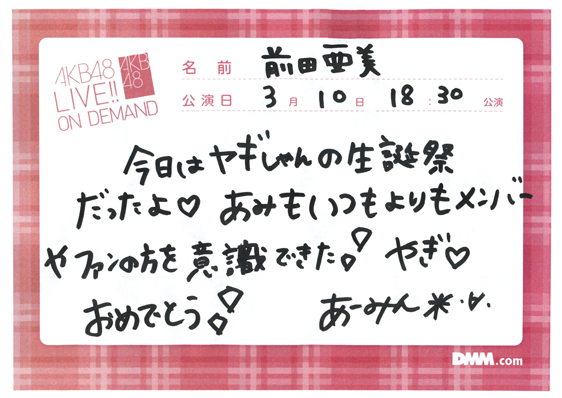 AKB48
LIVE!!
ON DEMAND
AKB
48
名前 前田亜美
公演日 3月10日 18:30公演
今日はヤギしゃんの生誕祭
だったよ♡ あみもいつもよりもメンバー
やファンの方を意識できた! やぎ♡
おめでとう! あーみん
DMM.com